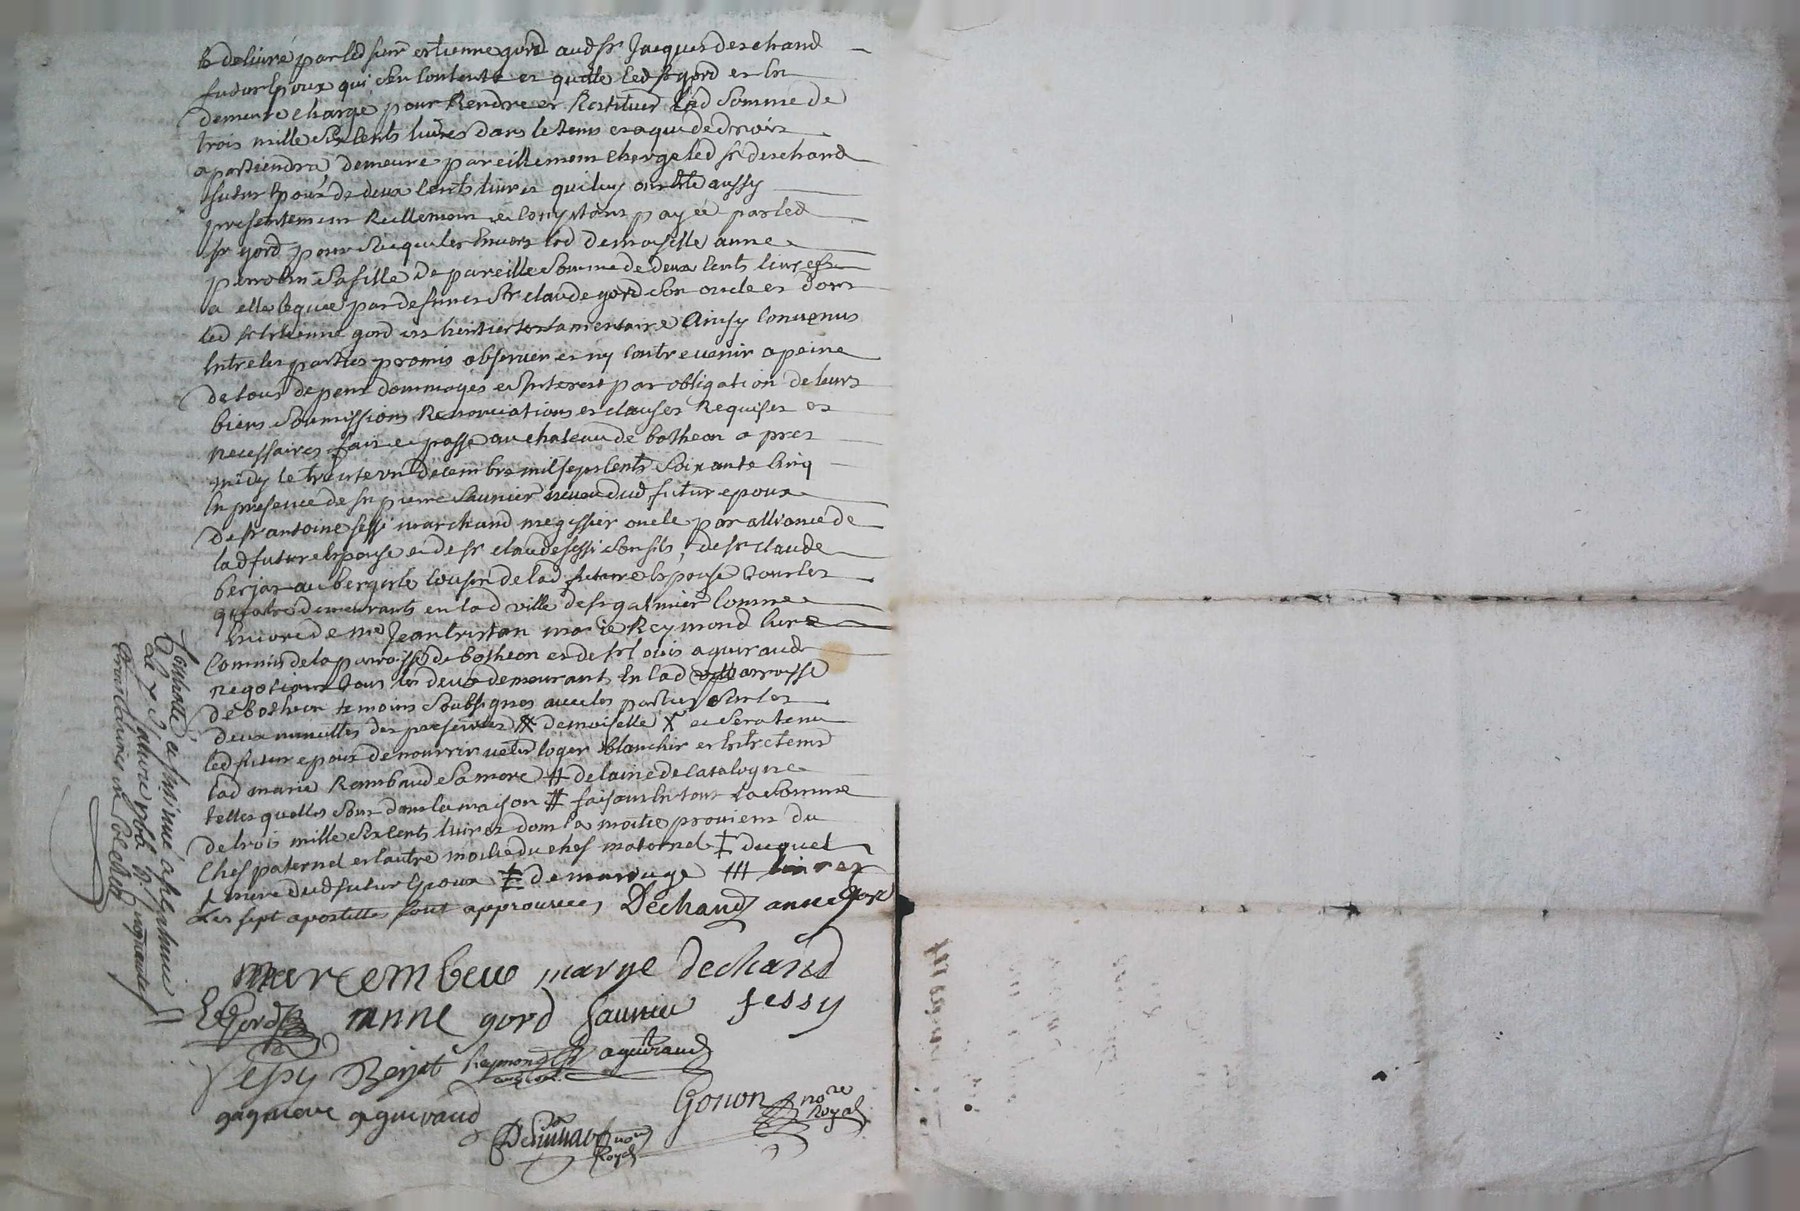 & delivré par led sieur estienne gord aud sr Jacques deschand
futur Epoux qui sen contente et quitte led sr gord et en
demeure chargé pour Rendre et Restituer lad Somme de
trois mille six cents livres dans le tems et a qui de droit
apartiendra, demeure pareillement chargé led sr deschand
futur Epoux de deux cents livres qui luy ont été aussy
presentement Reellement et comptant payée par led
sr gord pour sacquiter Envers lad demoiselle anne
sa fille de pareille Somme de deux cents livres
a elle leguée par deffunt Sr claude gord son oncle et dont
led sr Estienne gord est heritier testamentaire Ainsy convenus
Entre les parties promis observer et ny contrevenir a peine
de tous depens dommages et Interest par obligation de leurs
biens Soumissions Renonciations et clauses Requises et
necessaires fait et passé au chateau de botheon apres
midy le trente un decembre mil sept cents soixante cinq
En presence de sr pierre Saunier neveu dud futur epoux
de sr antoine sessi marchand megissier oncle par alliance de
lad future Epouse et de sr claude sessi son fils, de sr claude
berjat aubergiste cousin de lad future Epouse tous les
quatre demeurants en lad ville de st galmier comme
Encore de me Jean tristan marie Reymond curé
commis de la parroisse de botheon et de sr Louis aguiraud
negotiant tous les deux demeurants En lad parroisse
de botheon temoins Soubsignes avec les parties Sur les
deux minuttes des presentes # demoiselle X et Sera tenu
led futur epoux de nourrir vetir loger blanchir et Entretenir
lad marie Rambaud Sa mere # de laine de Catalogne
telles quelles sont dans la maison # faisant En tout la Somme
de trois mille six cents livres dont la moitié provient du
Chef paternel et lautre moitié du chef maternel ‡ duquel
mere dud futur Epoux ‡ de mariage ## livres
Les sept apostilles sont approuvées Dechand anne gord
marye dechand
E Gord anne gord Saunier sessy
sessy Berjat Reymond aguiraud
gagniere aguiraud
Gonon nore
Royal
nore
Royal
Controllé et Insinué